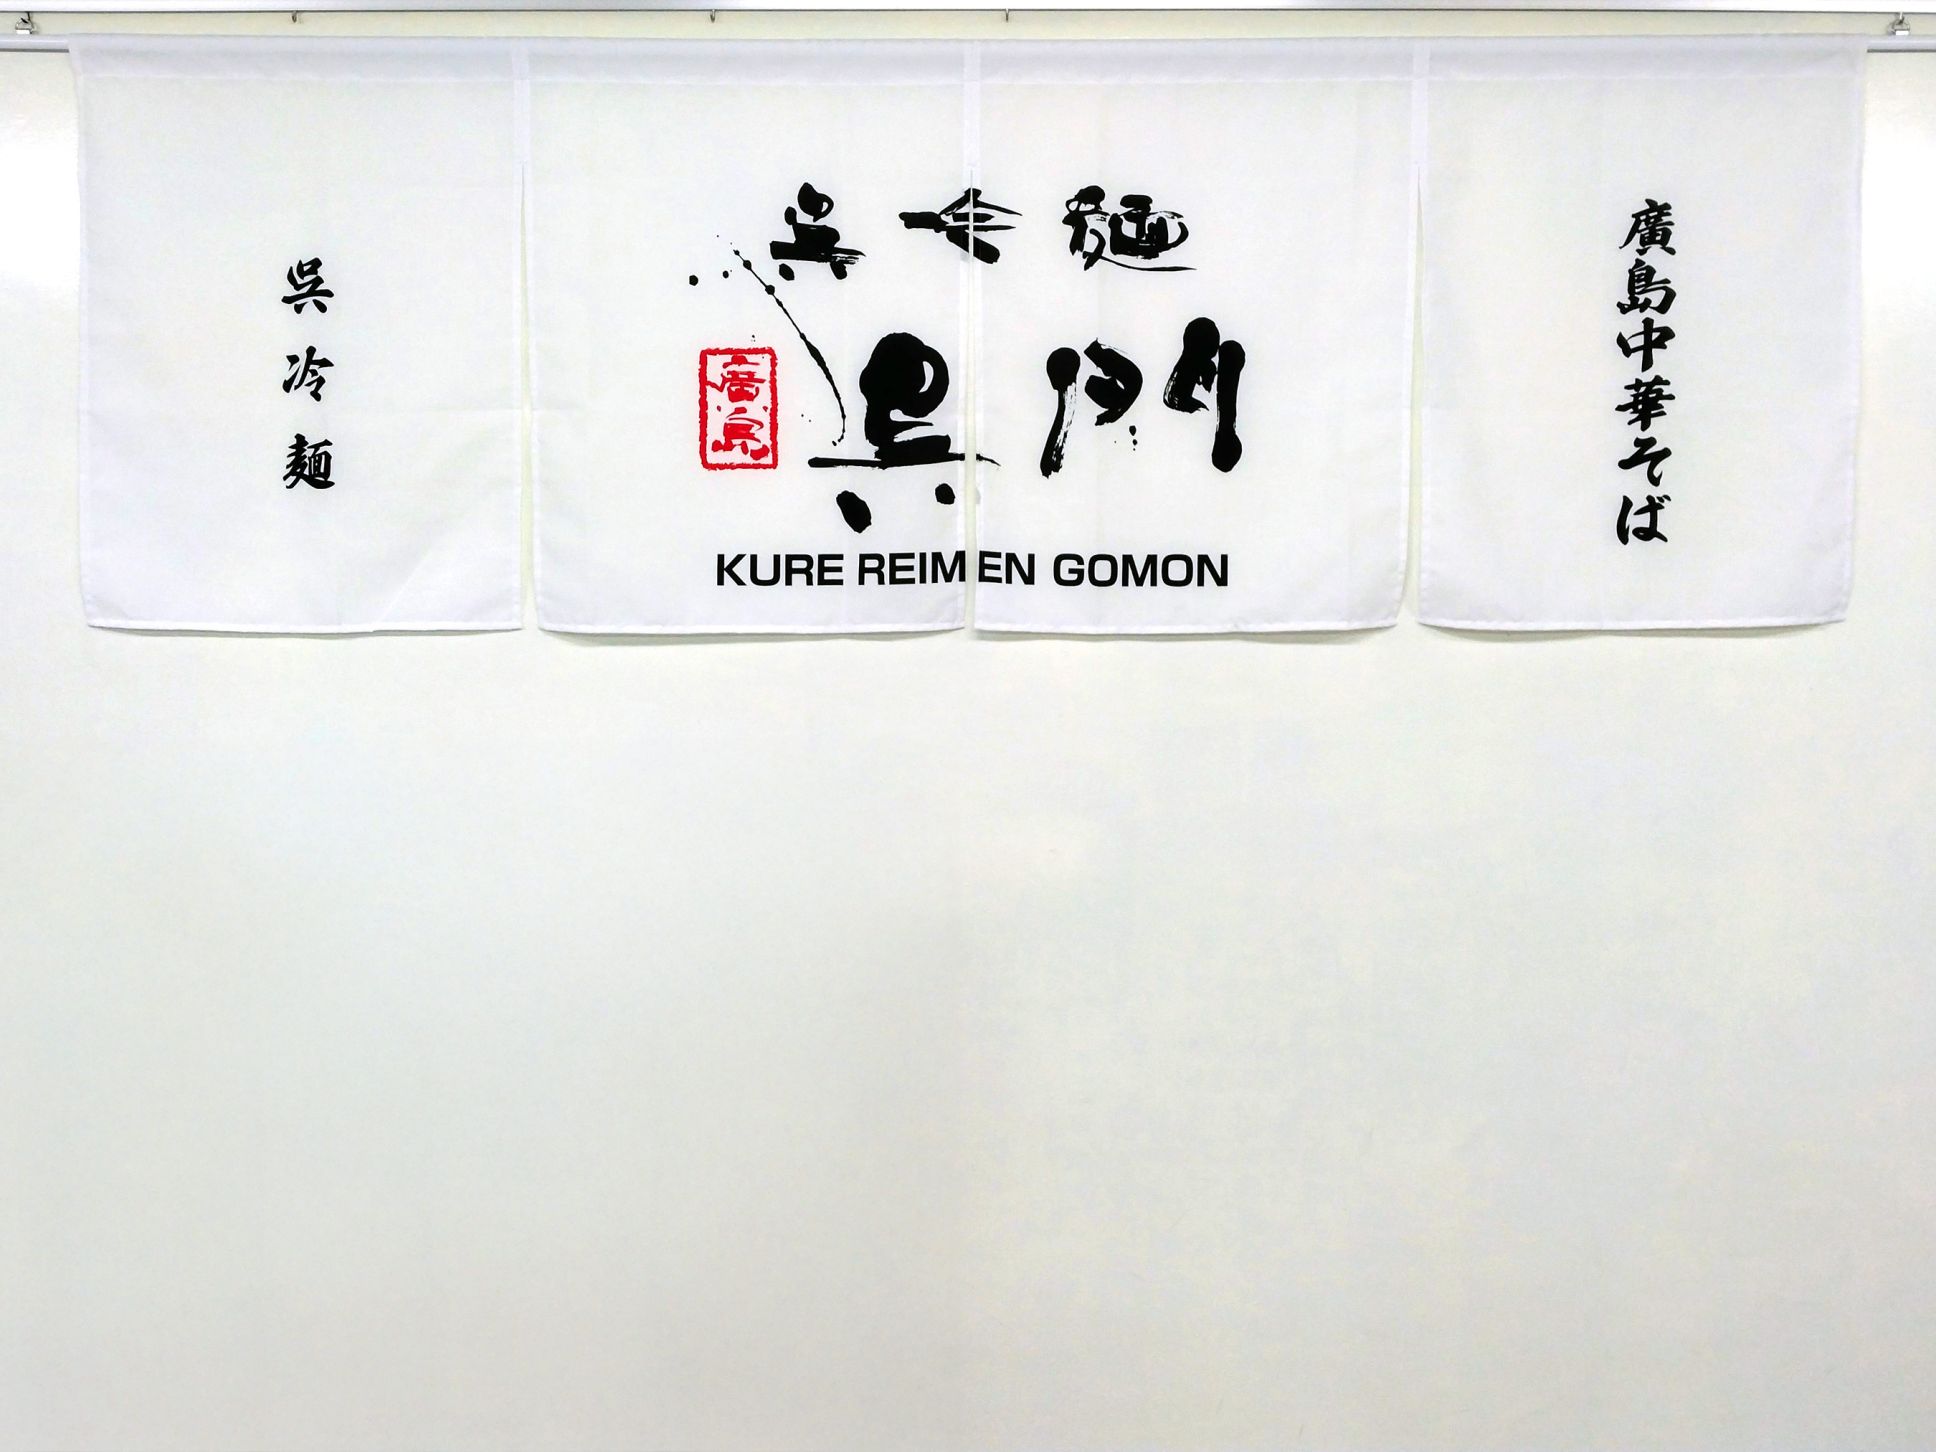 呉冷麺
呉冷麺
廣島
呉門
KURE REIMEN GOMON
廣島中華そば